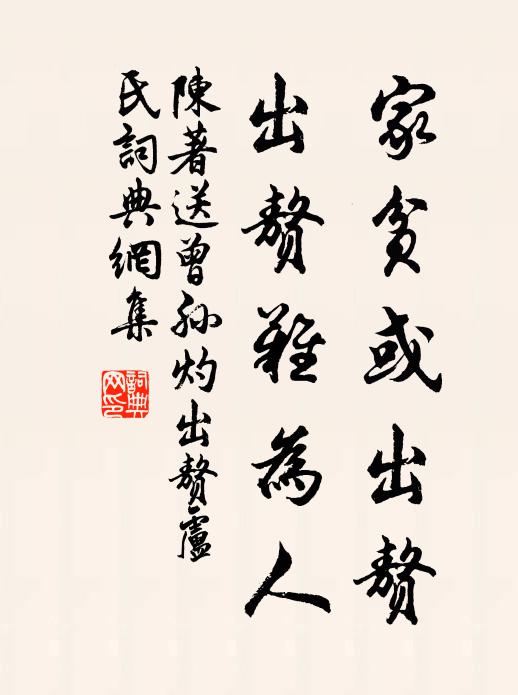 家貧或出贅
出贅難為人
陳著送曾孫灼出贅盧
氏詞典網集
詞典網印